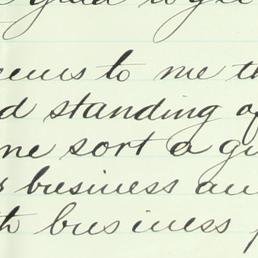 glad to ge
eems to me th
d standing of
ne sort a gu
s business an
th business